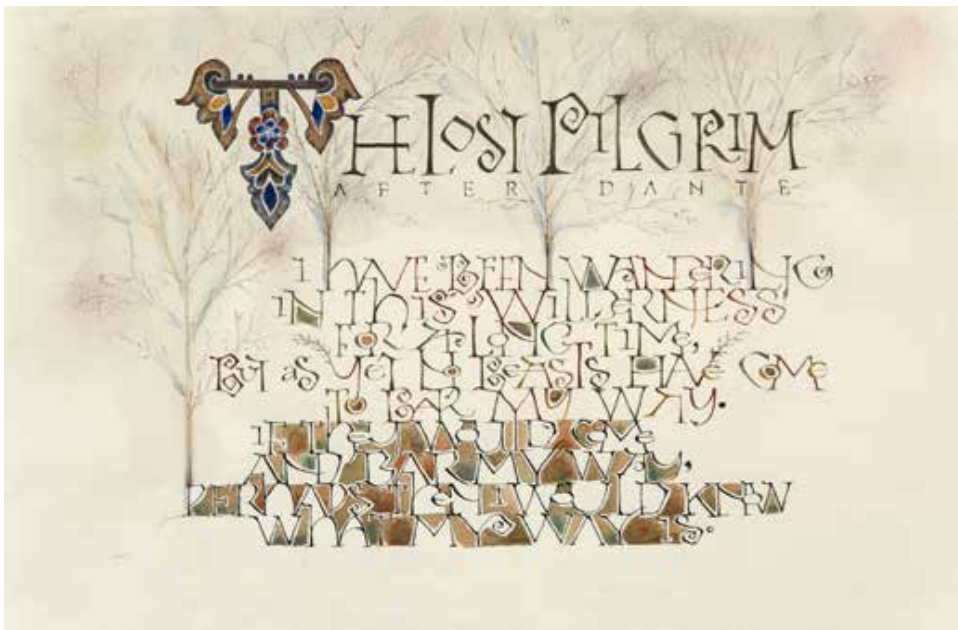 THE LOST PILGRIM
AFTER DANTE
I HAVE BEEN WANDERING
IN THIS WILDERNESS
FOR A LONG TIME,
BUT AS YET NO BEASTS HAVE COME
TO BAR MY WAY.
IF THEY WOULD COME
AND BAR MY WAY,
PERHAPS THEN I WOULD KNOW
WHAT MY WAY IS.